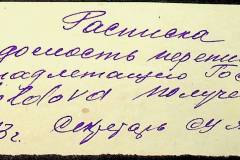 Расписка
домость переписи
надлежащего Гос
oldova получе
3г. Секретарь